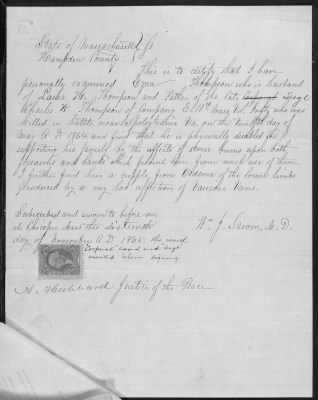 State of Massachusetts } ss
Hampden County }
This is to certify that I have
personally examined Ezra Thompson who is husband
of Laura H. Thompson and Father of the late Corporal Sergt
Charles W. Thompson of Company E 10th Mass Vol. Infty who was
killed in battle near Spotsylvania Va, on the twelfth day of
May A D 1864 and find that he is physically disabled for
supporting his family by the effects of severe burns upon both
forearms and hands which prevent him from much use of them
I further find him a cripple from oedema of the lower limbs
produced by a very bad affection of Varicose Veins.
Subscribed and sworn to before me
at Chicopee Mass this sixteenth
day of November A D. 1865 the word
"Corporal" erased and Sergt
inserted before signing
Wm J. Sawin, M. D.
Justice of the Peace